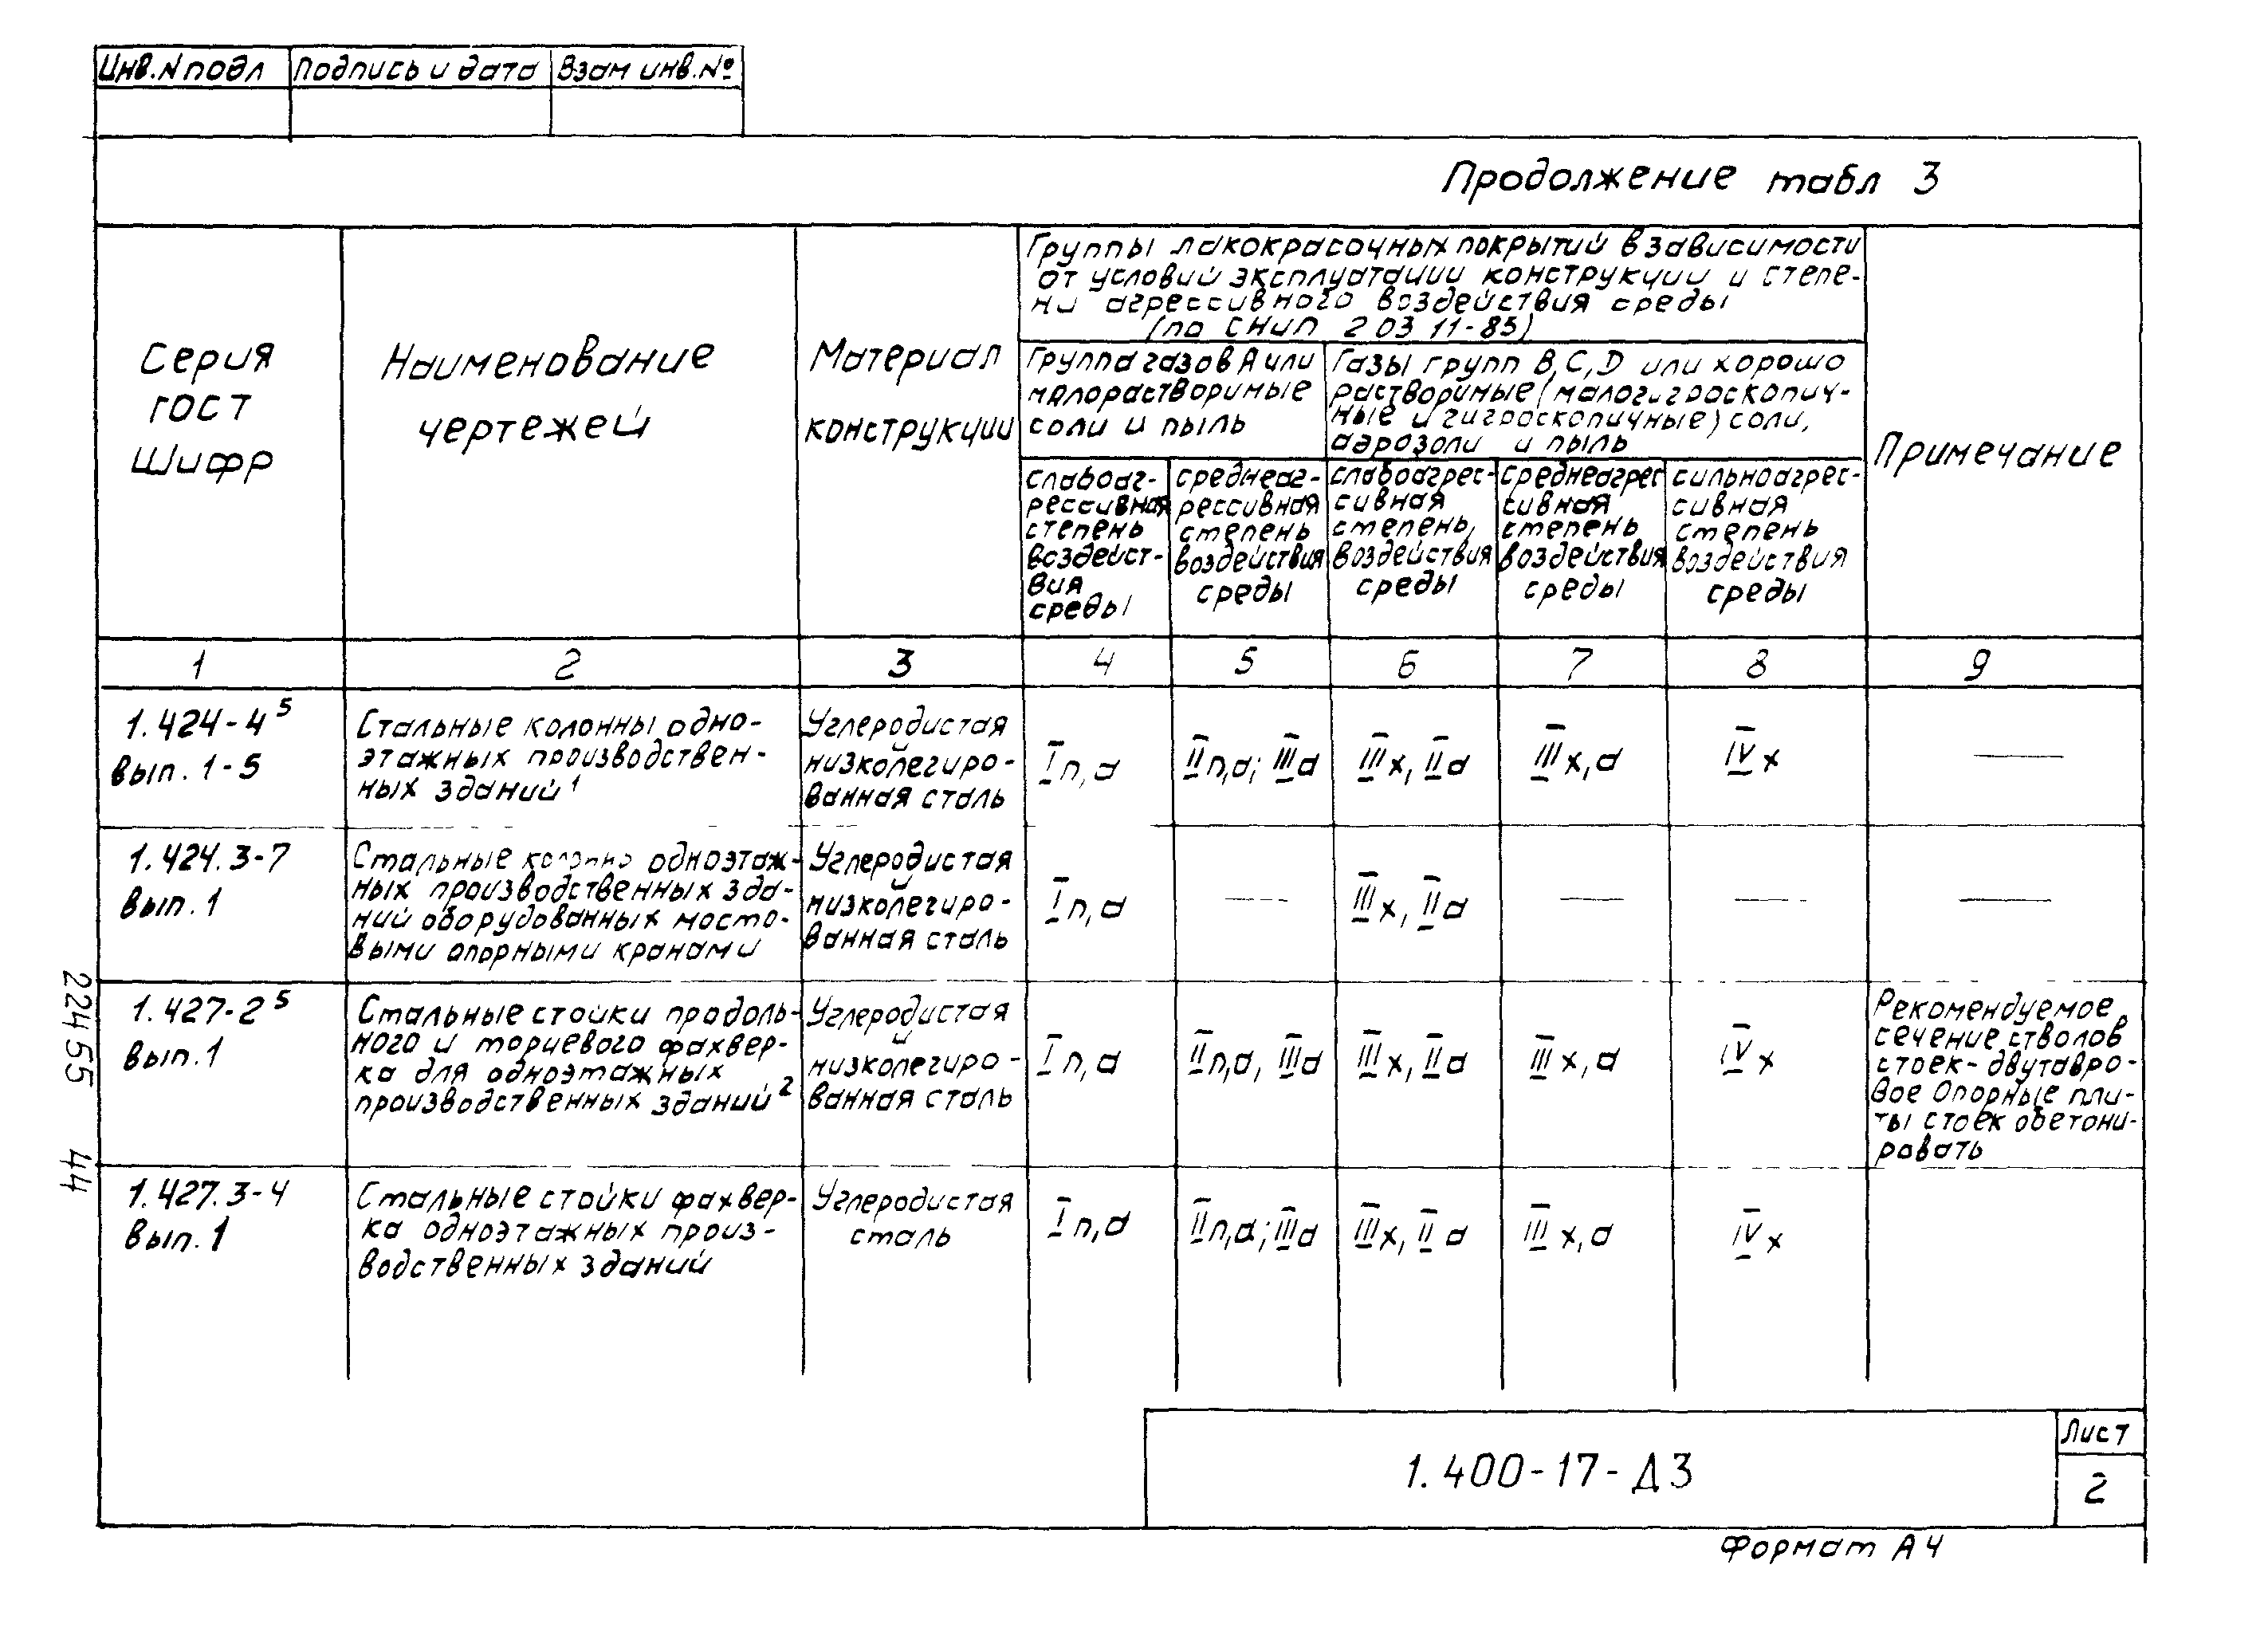 Инв.N подл Подпись и дата Взам инв.№
Продолжение табл 3
Серия
ГОСТ
Шифр
Наименование
чертежей
Материал
конструкции
Группы лакокрасочных покрытий в зависимости
от условий эксплуатации конструкции и степе-
ни агрессивного воздействия среды
(по СНиП 2 03 11-85)
Группа газов А или
малорастворимые
соли и пыль
Газы групп В,С,D или хорошо
растворимые (малогигроскопич-
ные и гигроскопичные) соли,
аэрозоли и пыль
слабоаг-
рессивная
степень
воздейст-
вия
среды
среднеаг-
рессивная
степень
воздействия
среды
слабоагрес-
сивная
степень,
воздействия
среды
среднеагрес
сивная
степень
воздействия
среды
сильноагрес-
сивная
степень
воздействия
среды
Примечание
1 2 3 4 5 6 7 8 9
1.424-4⁵
вып. 1-5
Стальные колонны одно-
этажных производствен-
ных зданий¹
Углеродистая
и
низколегиро-
ванная сталь
I п,а
II п,а; III а
III х, II а
III х,а
IV х
—
1.424.3-7
вып. 1
Стальные одноэтаж-
ных производственных зда-
ний оборудованных мосто-
выми опорными кранами
Углеродистая
и
низколегиро-
ванная сталь
I п,а
—
III х, II а
—
—
—
1.427-2⁵
вып.1
Стальные стойки продоль-
ного и торцевого фахвер-
ка для одноэтажных
производственных зданий²
Углеродистая
и
низколегиро-
ванная сталь
I п,а
II п,а, III а
III х, II а
III х,а
IV х
Рекомендуемое
сечение стволов
стоек-двутавро-
вое Опорные пли-
ты стоек обетони-
ровать
1.427.3-4
вып. 1
Стальные стойки фахвер-
ка одноэтажных произ-
водственных зданий
Углеродистая
сталь
I п,а
II п,а; III а
III х, II а
III х,а
IV х
22455 44
1.400-17-Д3
Лист
2
Формат А4